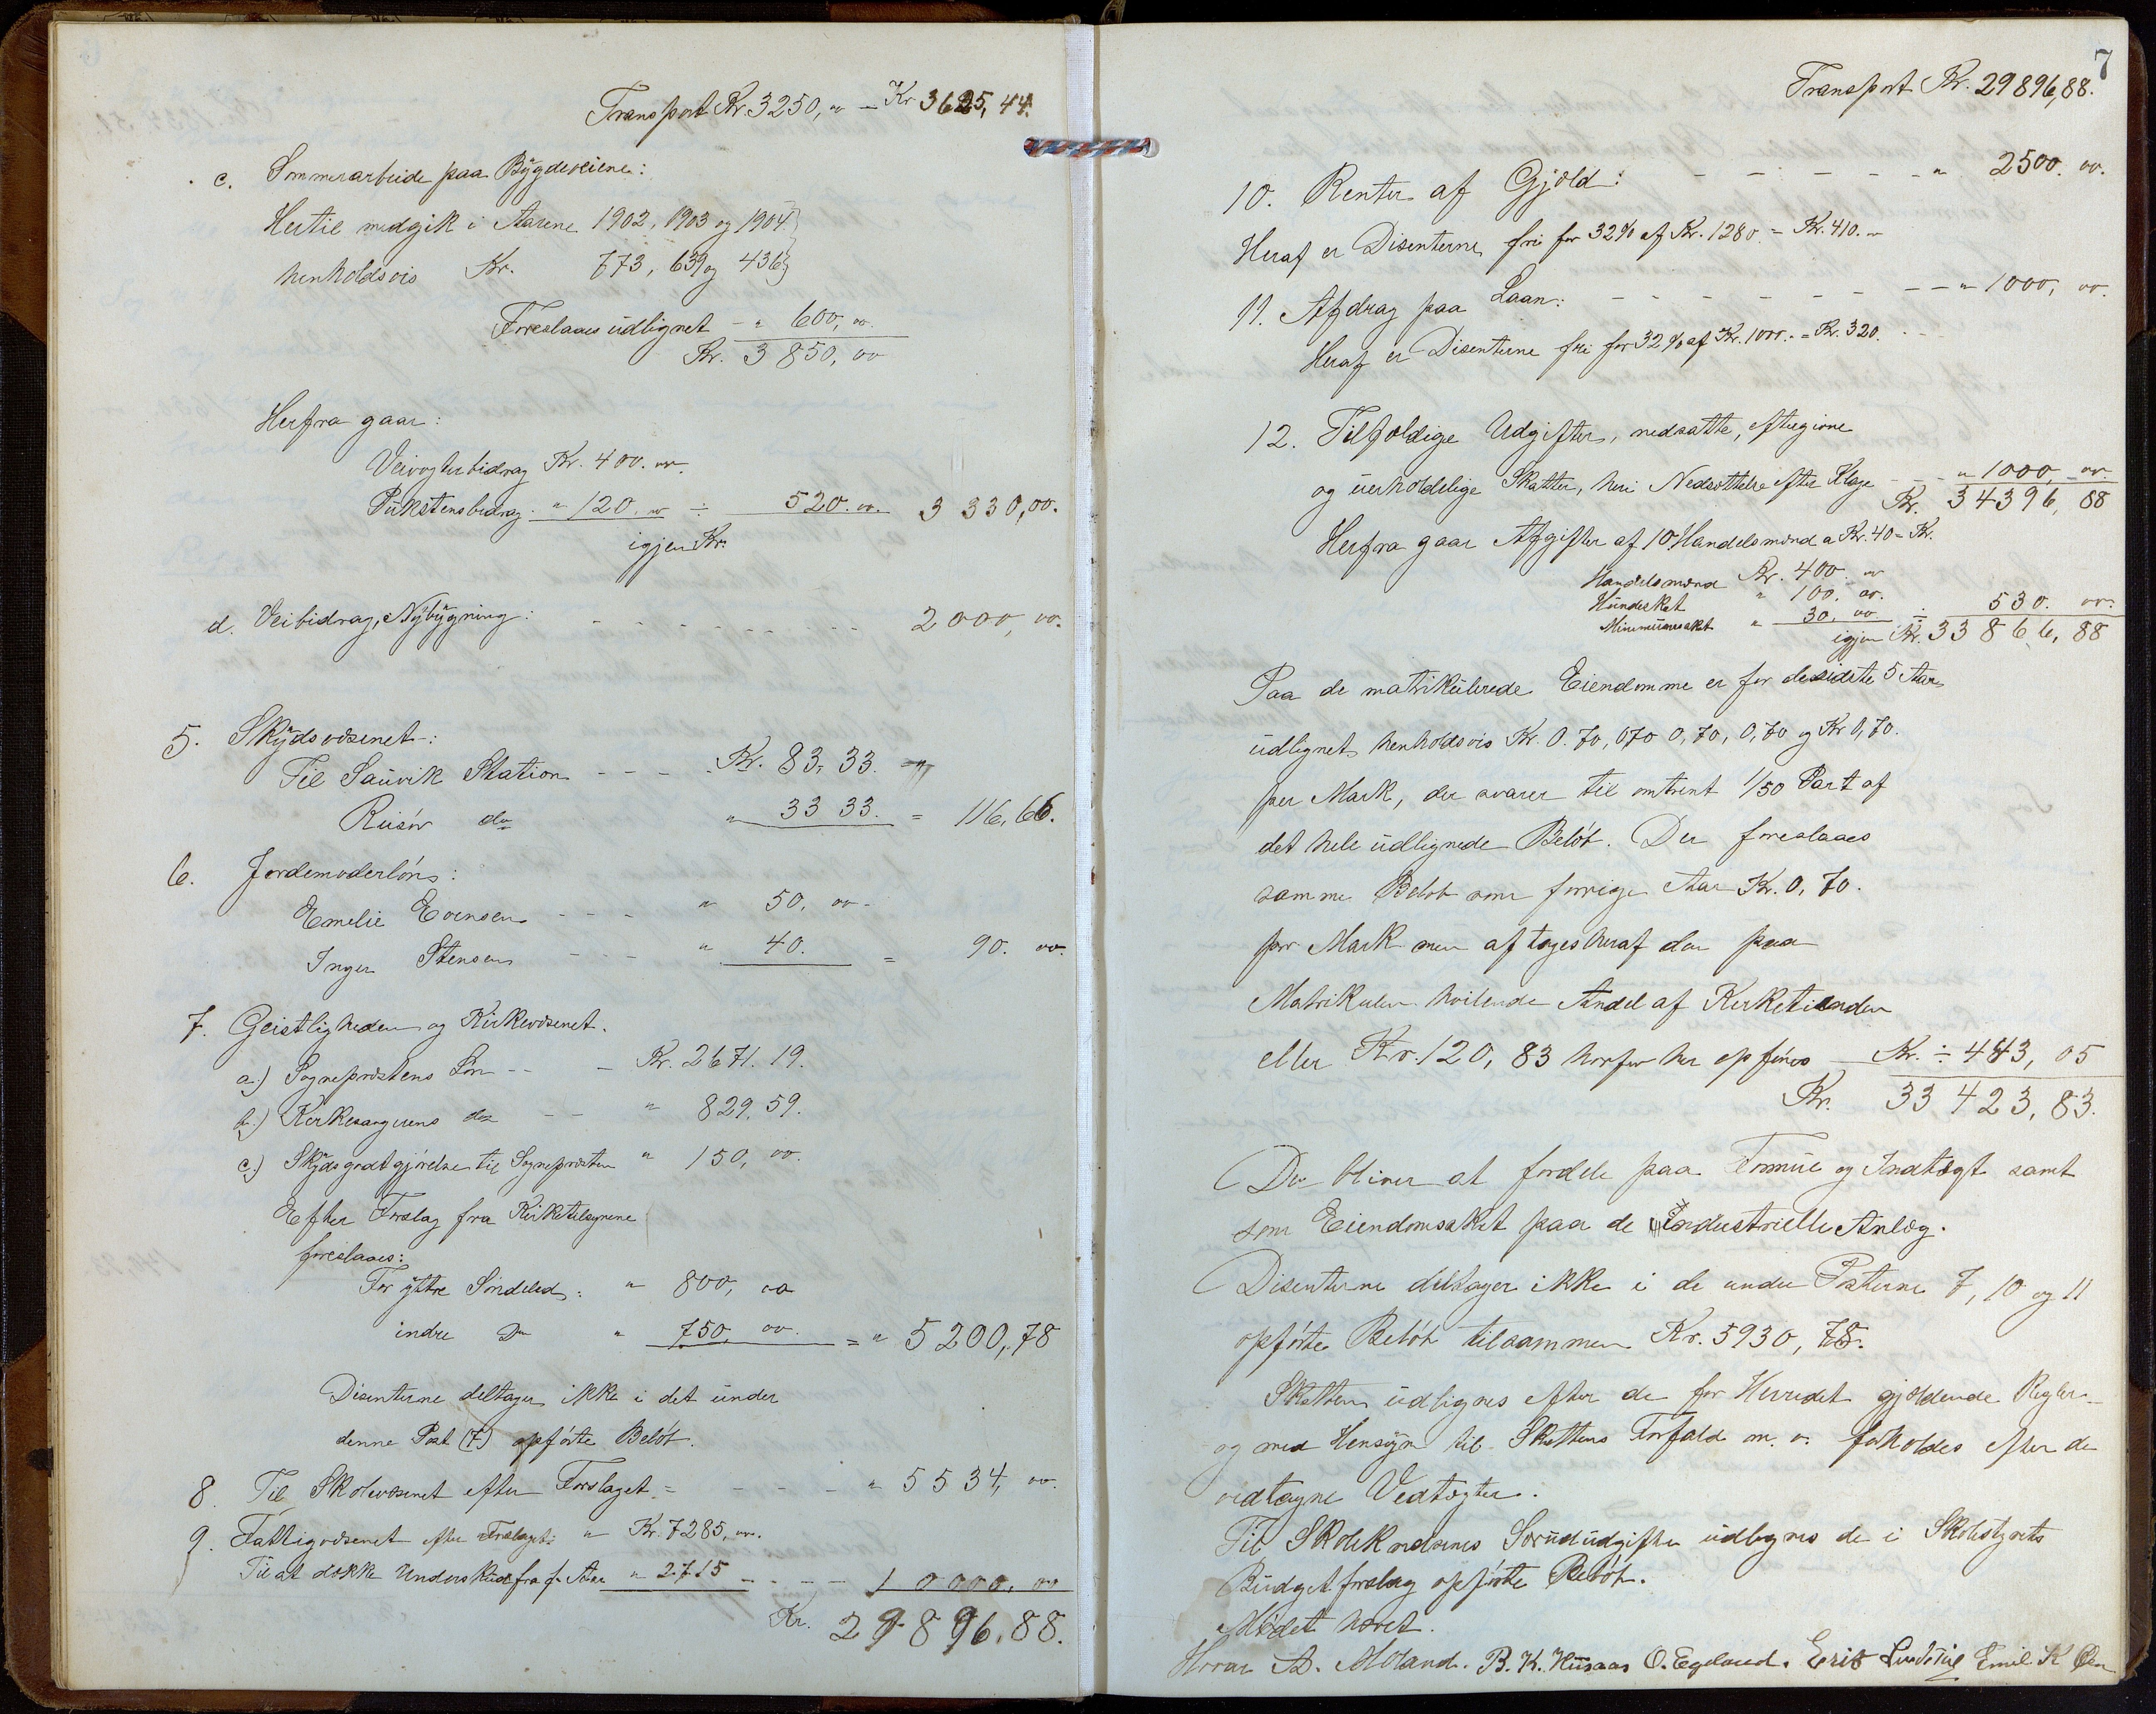 Transport Kr. 3250, " – Kr 3625, 44.
c. Sommerarbeide paa Bÿgdeveiene:
Hertil medgik i Aarene 1902, 1903 og 1904
henholdsvis Kr. 773, 639 og 436
Foreslaaes udlignet – " 600, oo.
Kr. 3850, oo
Herfra gaar:
Veivogterbidrag Kr. 400. oo.
Pukstensbidrag " 120. oo ÷ 520. oo. 3 330, oo.
igjen Kr.
d. Veibidrag, Nÿbÿgning: - - - - - - - 2000, oo.
5. Skÿdsvæsenet:
Til Saüvik Station - - - Kr. 83, 33. "
Risør do " 33 33. = 116, 66.
6. Jordemoderløn:
Emelie Evensen - - - " 50, oo -
Inger Stensen - - - " 40. = 90. oo.
7. Geistligheden og Kirkevæsenet.
a.) Sogneprestens Løn - - - Kr. 2671. 19.
b.) Kirkesangerens do - - " 829. 59.
c.) Skÿdsgodtgjørelse til Sognepresten " 150, oo.
Efter Forslag fra Kirketilsynene
foreslaaes:
For ÿttre Søndeled: " 800, oo
indre Do " 750, oo. = " 5200, 78
Disenterne deltager ikke i det under
denne Post (7) opførte Beløb.
8. Til Skolevæsenet efter Forslaget = - - - - " 5534, oo.
9. Fattigvæsenet efter Forslaget: " Kr. 7285, oo.
Til at dække Underskud fra f. Aar " 2715 - - - - 10000, oo
Kr. 29896, 88.
7
Transport Kr. 29896, 88.
10. Renter af Gjæld: - - - - - - " 2500. oo.
Heraf er Disenterne fri for 32% af Kr. 1280. = Kr. 410. "
11. Afdrag paa Laan: - - - - - - - - " 1000, oo.
Heraf er Disenterne fri for 32% af Kr. 1000. = Kr. 320.
12. Tilfældige Udgifter, nedsatte, eftergivne
og uerholdelige Skatter, heri Nedsættelse efter Klage - - " 1000, oo.
Kr. 34396, 88
Herfra gaar Afgifter af 10 Handelsmænd a Kr. 40 = Kr.
Handelsmænd Kr. 400. oo
Hundeskat " 100. oo.
Minimumsskat " 30, oo ÷ 530. oo.
igjen Kr. 33866, 88
Paa de matrikulerede Eiendomme er for de sidste 5 Aar
udlignet henholdsvis Kr. 0.70, 070 0,70, 0,70 og Kr 0,70.
per Mark, der svarer til omtrent 1/50 Part af
det hele udlignede Beløb. Der foreslaaes
samme Beløb som forrige Aar Kr. 0, 70.
per Mark men aftages heraf den paa
Matrikulen hvilende Andel af Kirketienden
eller Kr. 120, 83 hvorfor her opføres – Kr. ÷ 443, 05
Kr. 33 423, 83.
Der bliver at fordele paa Formue og Indtægt samt
som Eiendomsskat paa de Industrielle Anlæg.
Disenterne deltager ikke i de under Posterne 7, 10 og 11
opførte Beløb tilsammen Kr. 5930, 78.
Skatten udlignes efter de for Herredet gjældende Regler
og med Hensÿn til Skattens Forfald m. v. forholdes efter de
vedtagne Vedtægter.
Til Skolekredsenes Særudgifter udlignes de i Skolestÿrets
Budgetforslag opførte Beløb.
Mødet hævet.
A. Moland. B. K. Husaas O. Egeland. Emil K